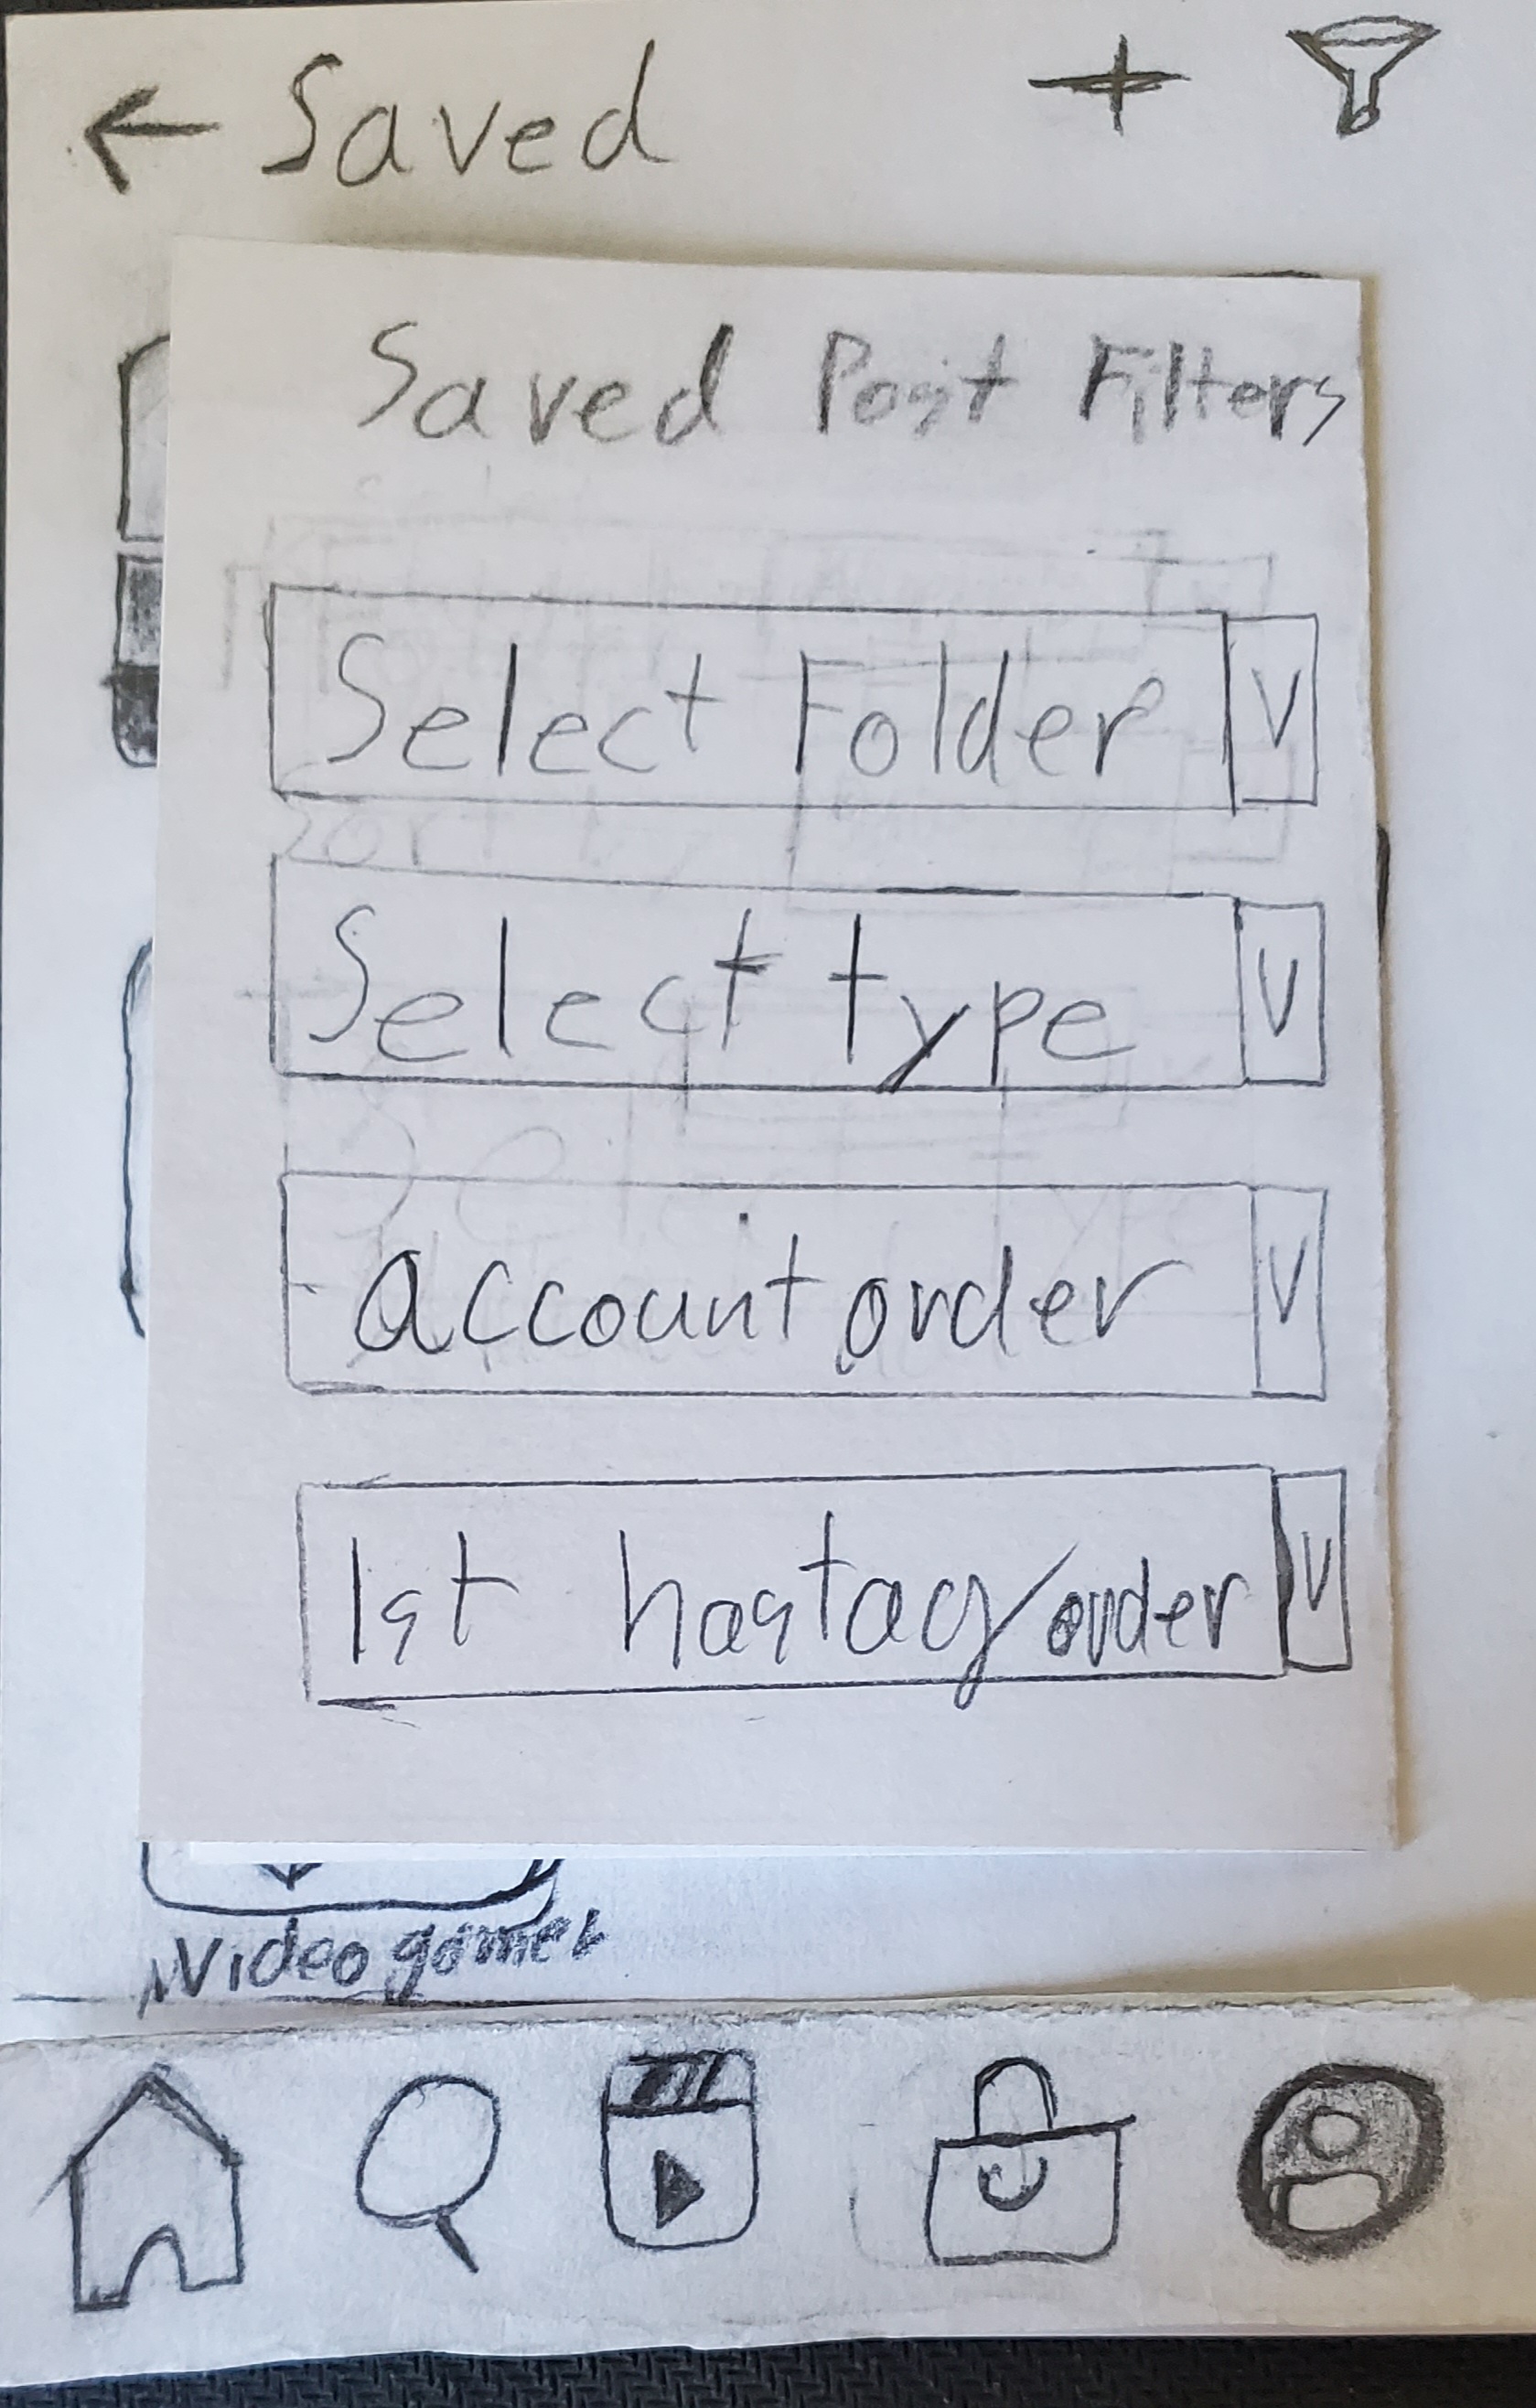 ← Saved +
Saved Post Filters
Select Folder V
Select type V
account order V
1st hastag/order V
Video games